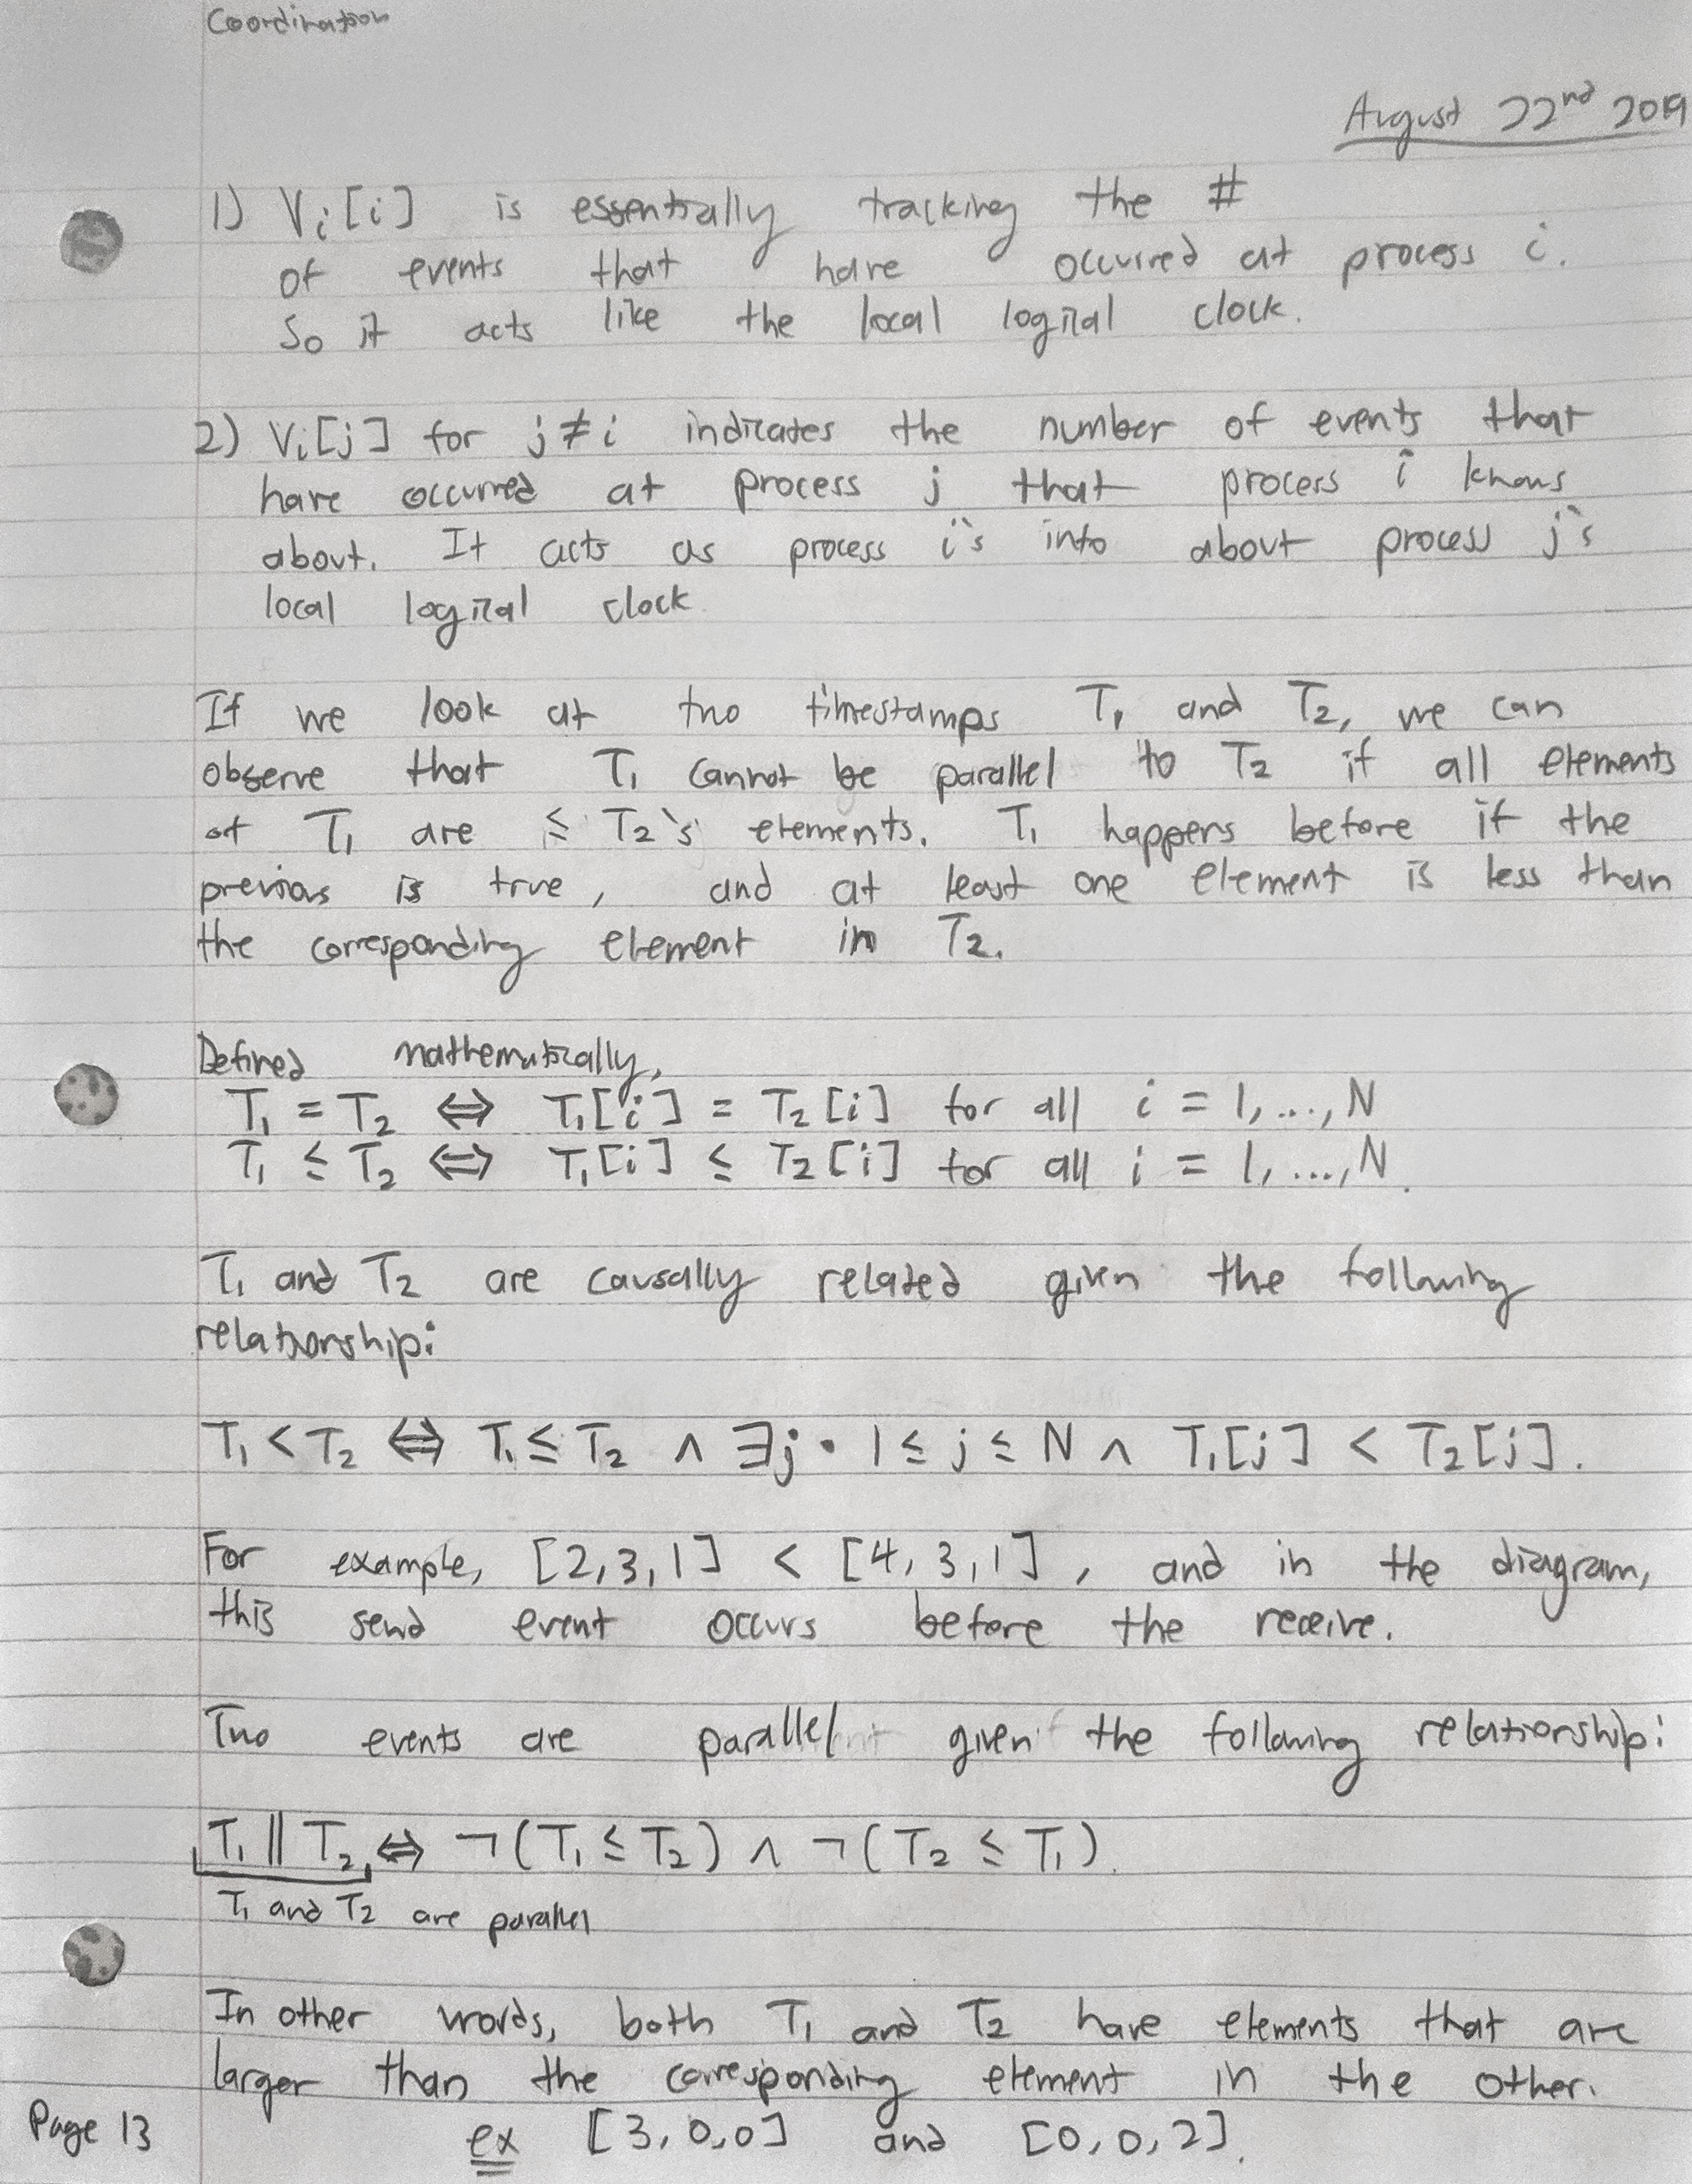 Coordination
August 22nd 2019
1) Vi[i] is essentially tracking the #
of events that have occurred at process i.
So it acts like the local logical clock.
2) Vi[j] for j≠i indicates the number of events that
have occurred at process j that process i knows
about. It acts as process i's info about process j's
local logical clock
If we look at two timestamps T₁ and T₂, we can
observe that T₁ cannot be parallel to T₂ if all elements
of T₁ are ≤ T₂'s elements. T₁ happens before if the
previous is true, and at least one element is less than
the corresponding element in T₂.
Defined mathematically,
T₁ = T₂ ⇔ T₁[i] = T₂[i] for all i = 1,...,N
T₁ ≤ T₂ ⇔ T₁[i] ≤ T₂[i] for all i = 1,...,N.
T₁ and T₂ are causally related given the following
relationship:
T₁ < T₂ ⇔ T₁ ≤ T₂ ∧ ∃j • 1 ≤ j ≤ N ∧ T₁[j] < T₂[j].
For example, [2,3,1] < [4,3,1], and in the diagram,
this send event occurs before the receive.
Two events are parallel given the following relationship:
T₁ || T₂ ⇔ ¬(T₁ ≤ T₂) ∧ ¬(T₂ ≤ T₁).
T₁ and T₂ are parallel
In other words, both T₁ and T₂ have elements that are
larger than the corresponding element in the other.
ex [3,0,0] and [0,0,2].
Page 13